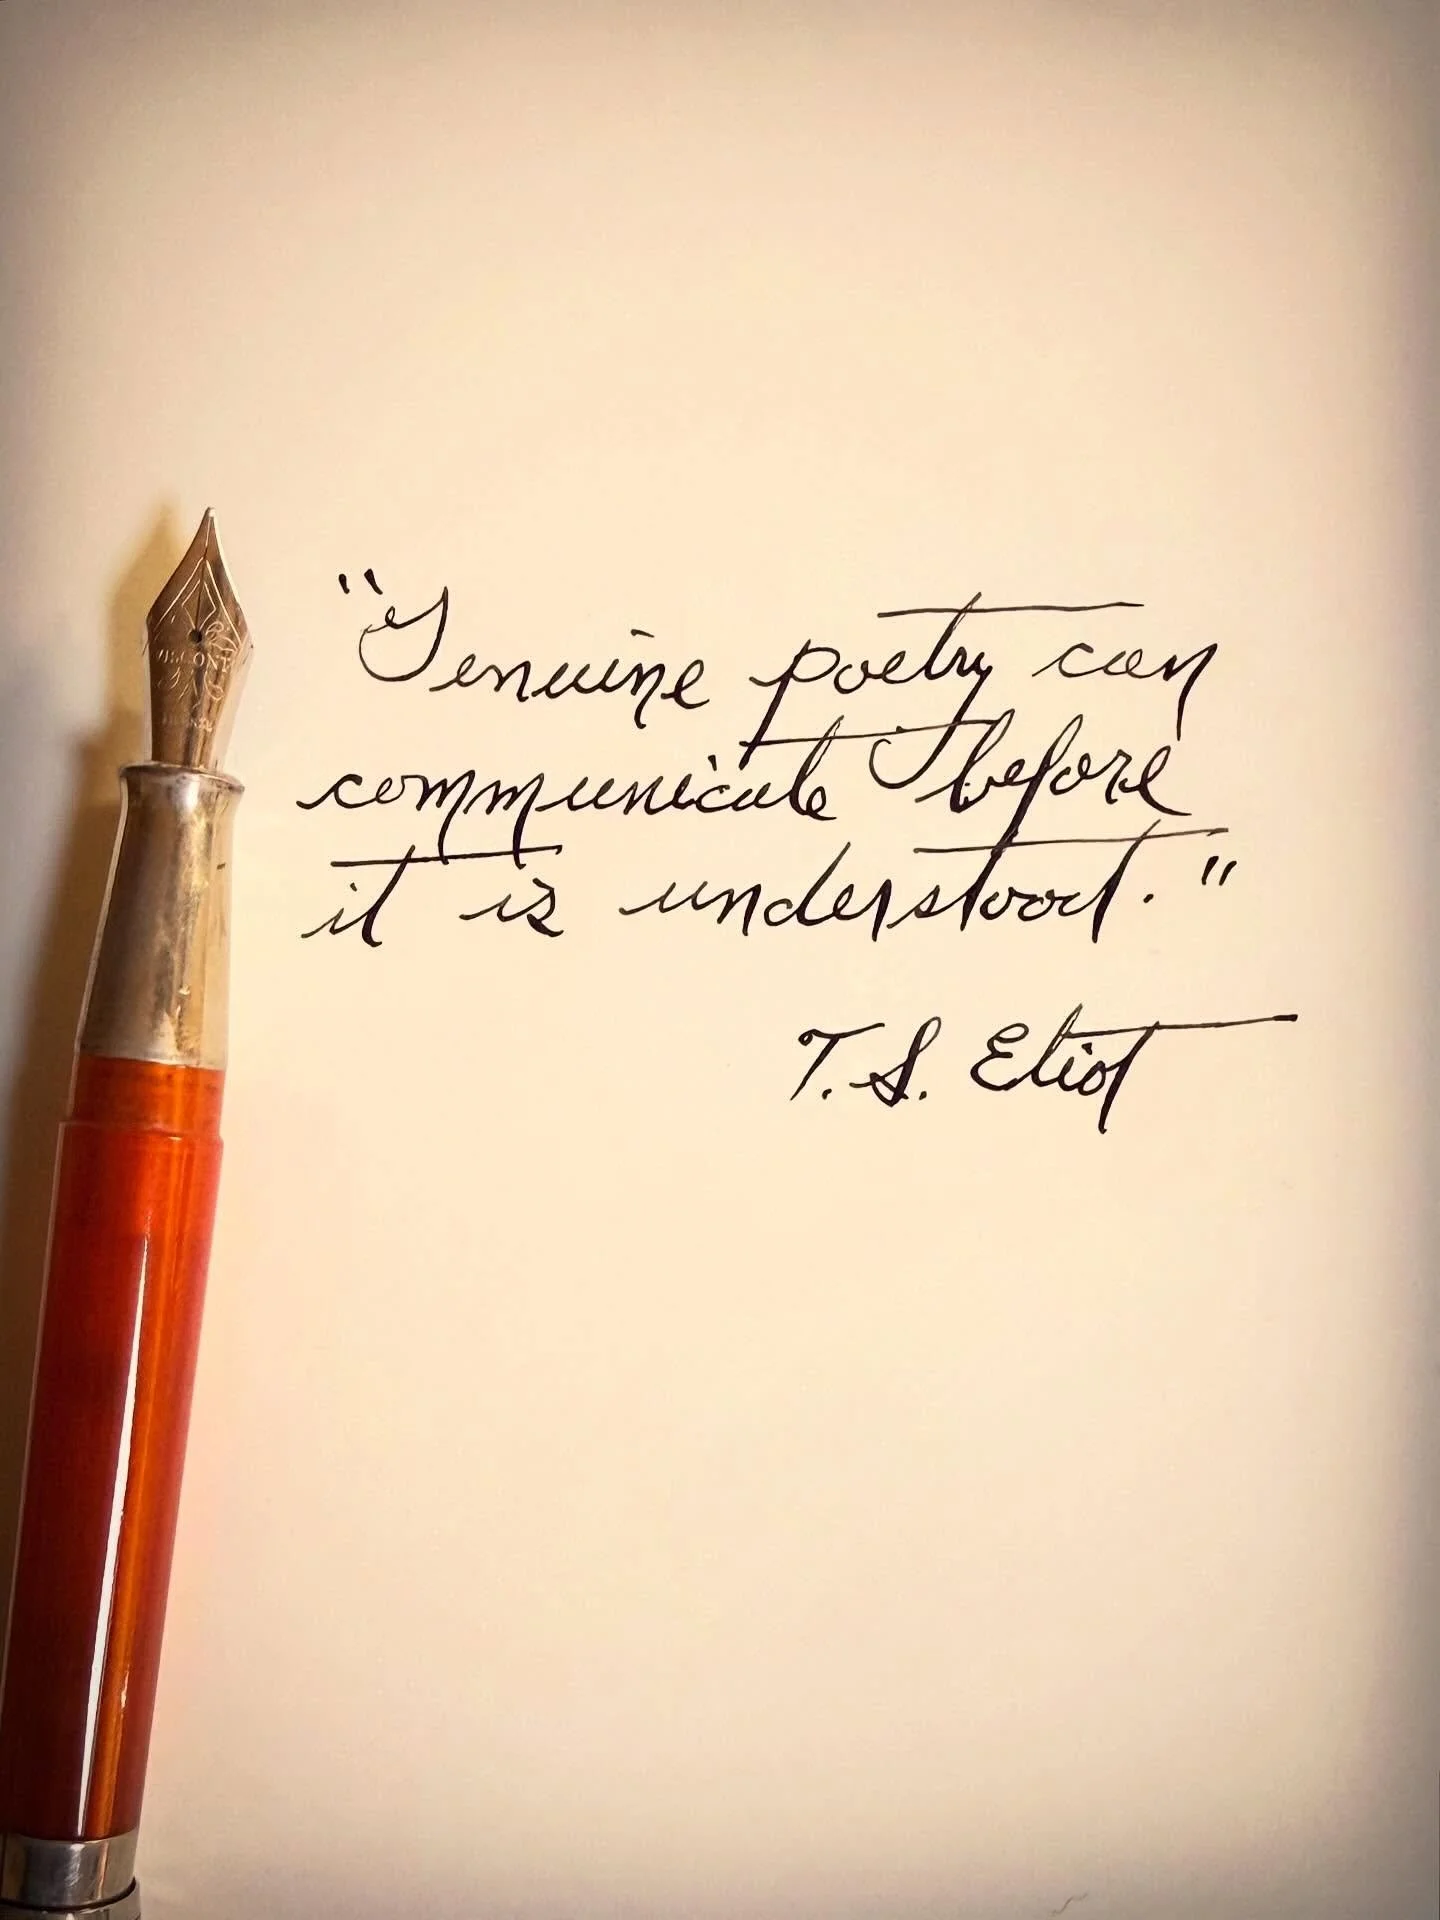 VISCONTI
"Genuine poetry can
communicate before
it is understood."
T. S. Eliot